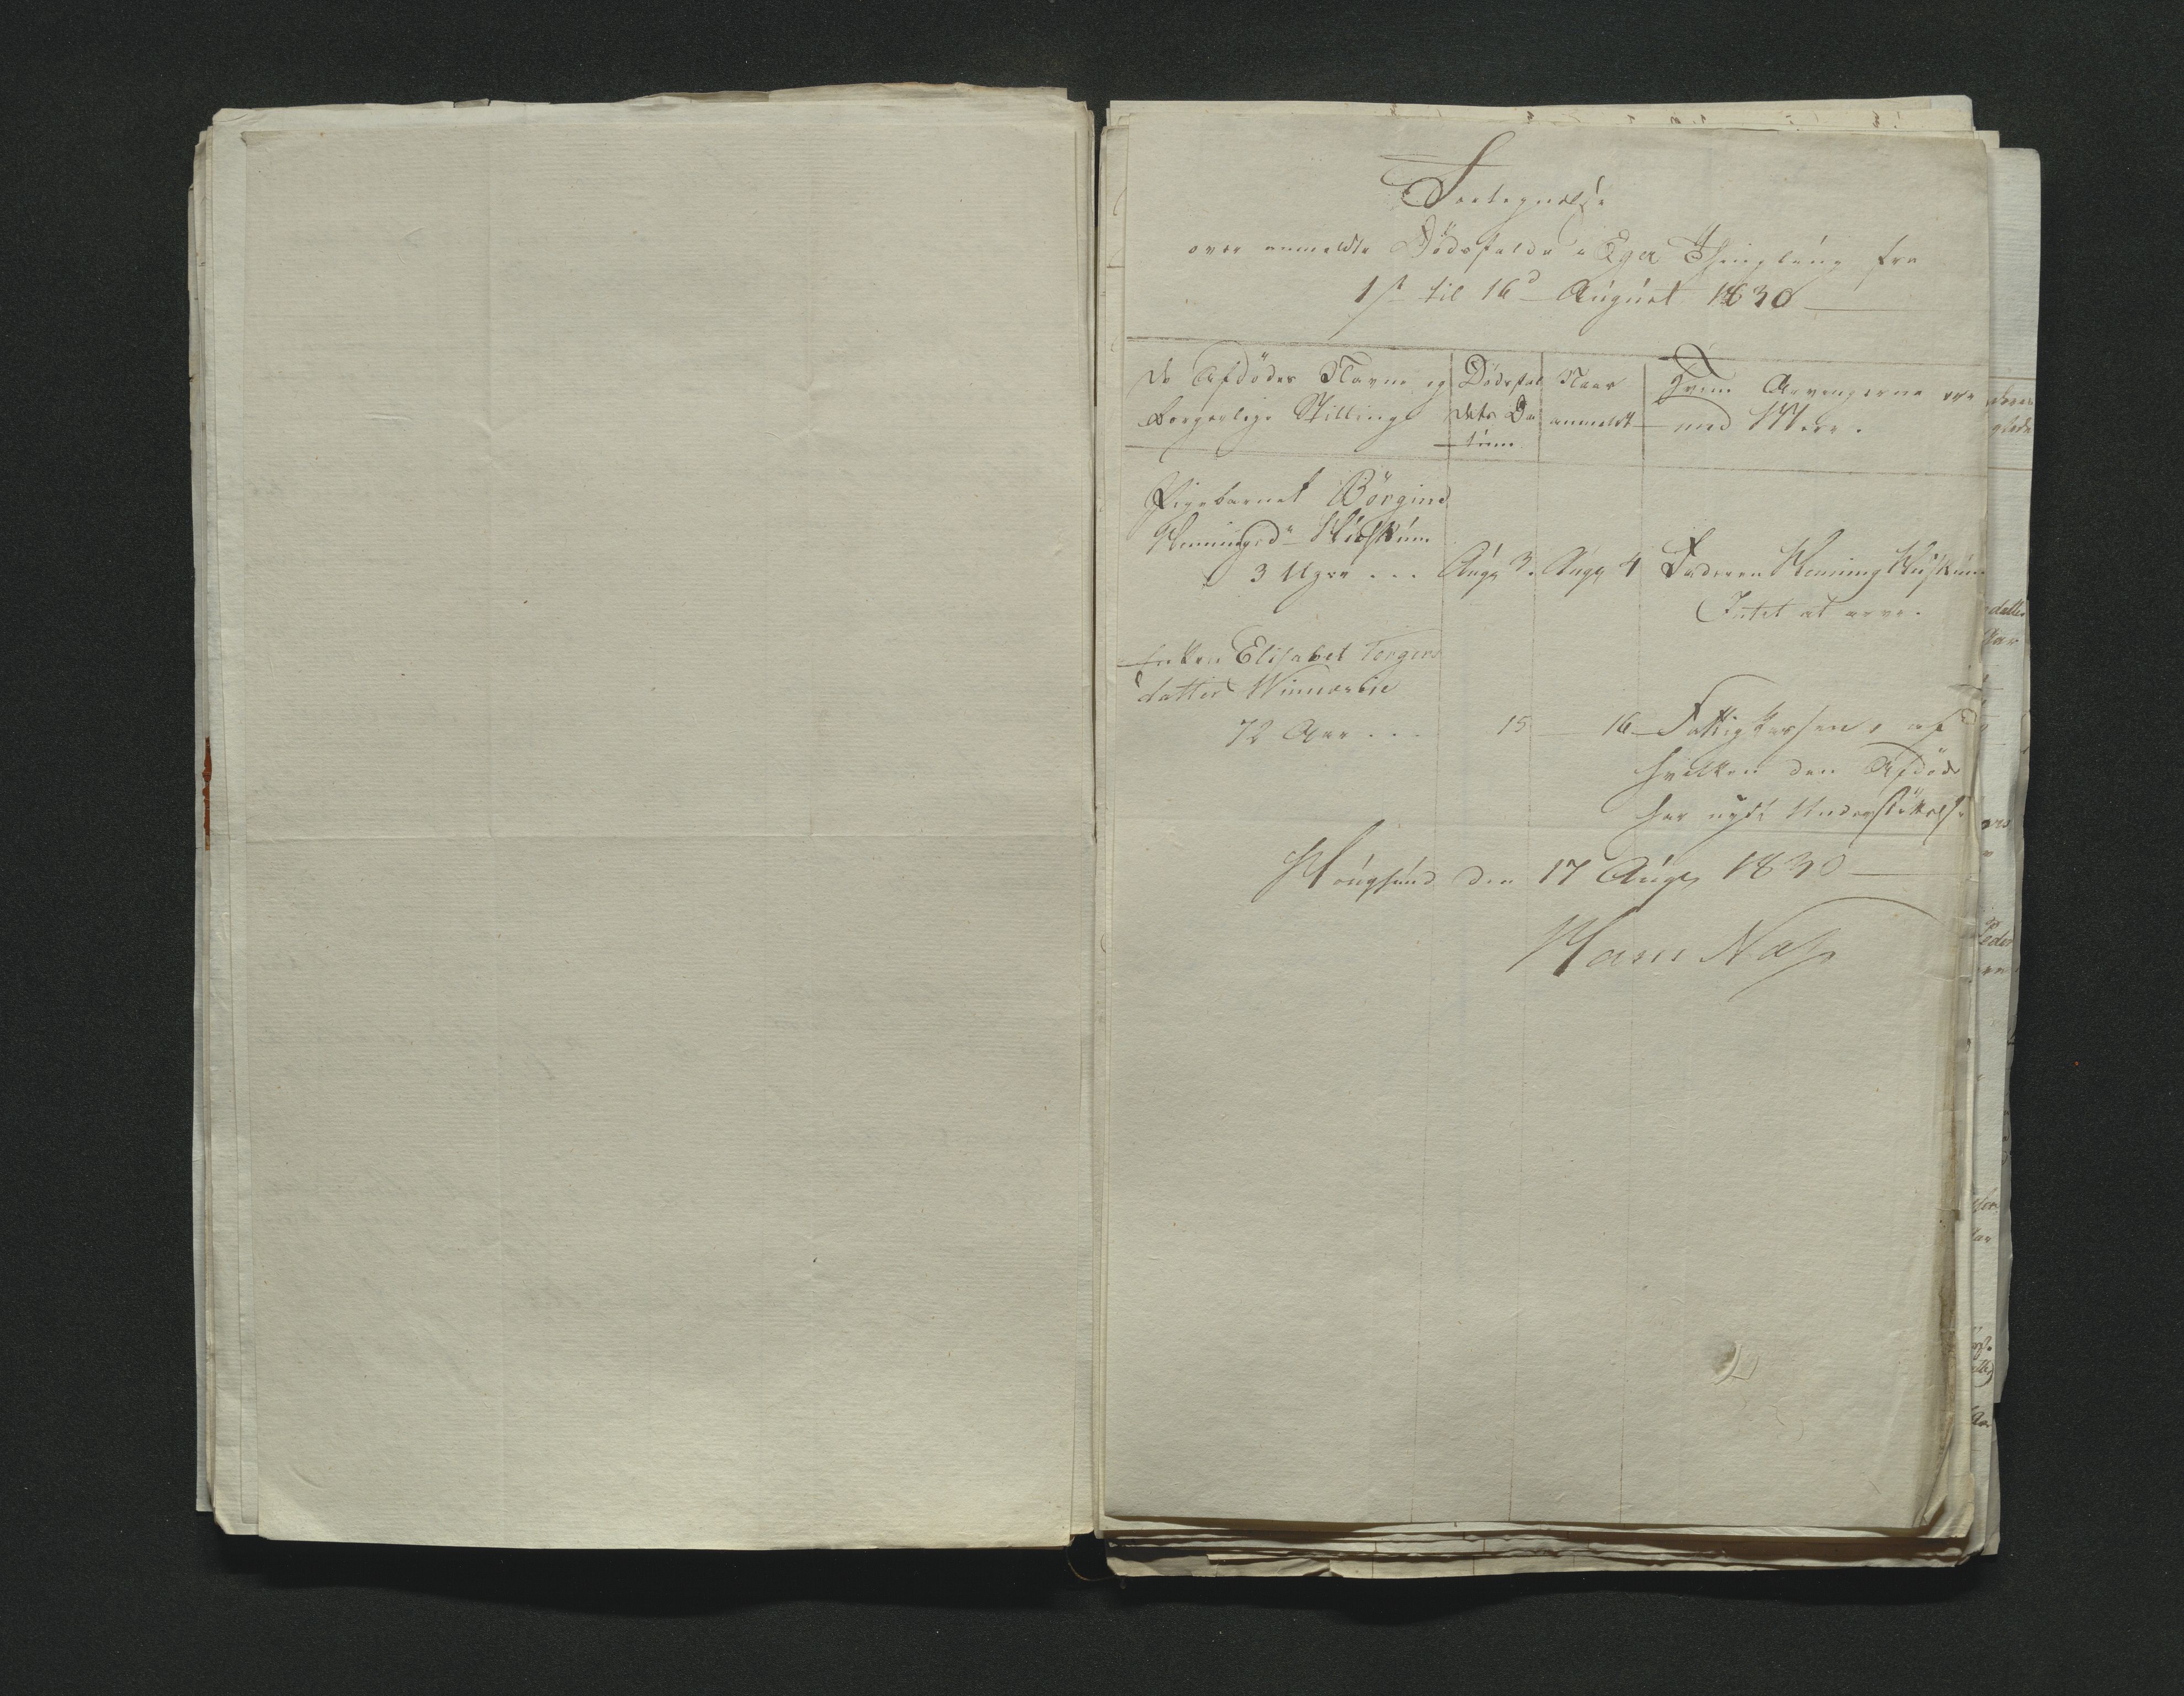 Fortegnelse
over anmeldte Dödsfalde i Eger Thinglaug fra
1ste til 16d August 1830
De Afdödes Navne og
borgerlige Stilling
Dödsfal
dets Da
tum
Naar
anmeldt
Hvem Arvingerne ere
med Mere.
Pigebarnet Börgine
Hemingsdr Huskum
3 Uger ... Aug 3. Aug 4 Faderen Heming Huskum
Intet at arve.
Enken Elisabet Torgers
datter Winnerbie
72 Aar ... 15 16 Fattigkassen, af
hvilken den Afdöde
har nydt Understöttelse
Hougsund den 17 Aug 1830
Hans Nass